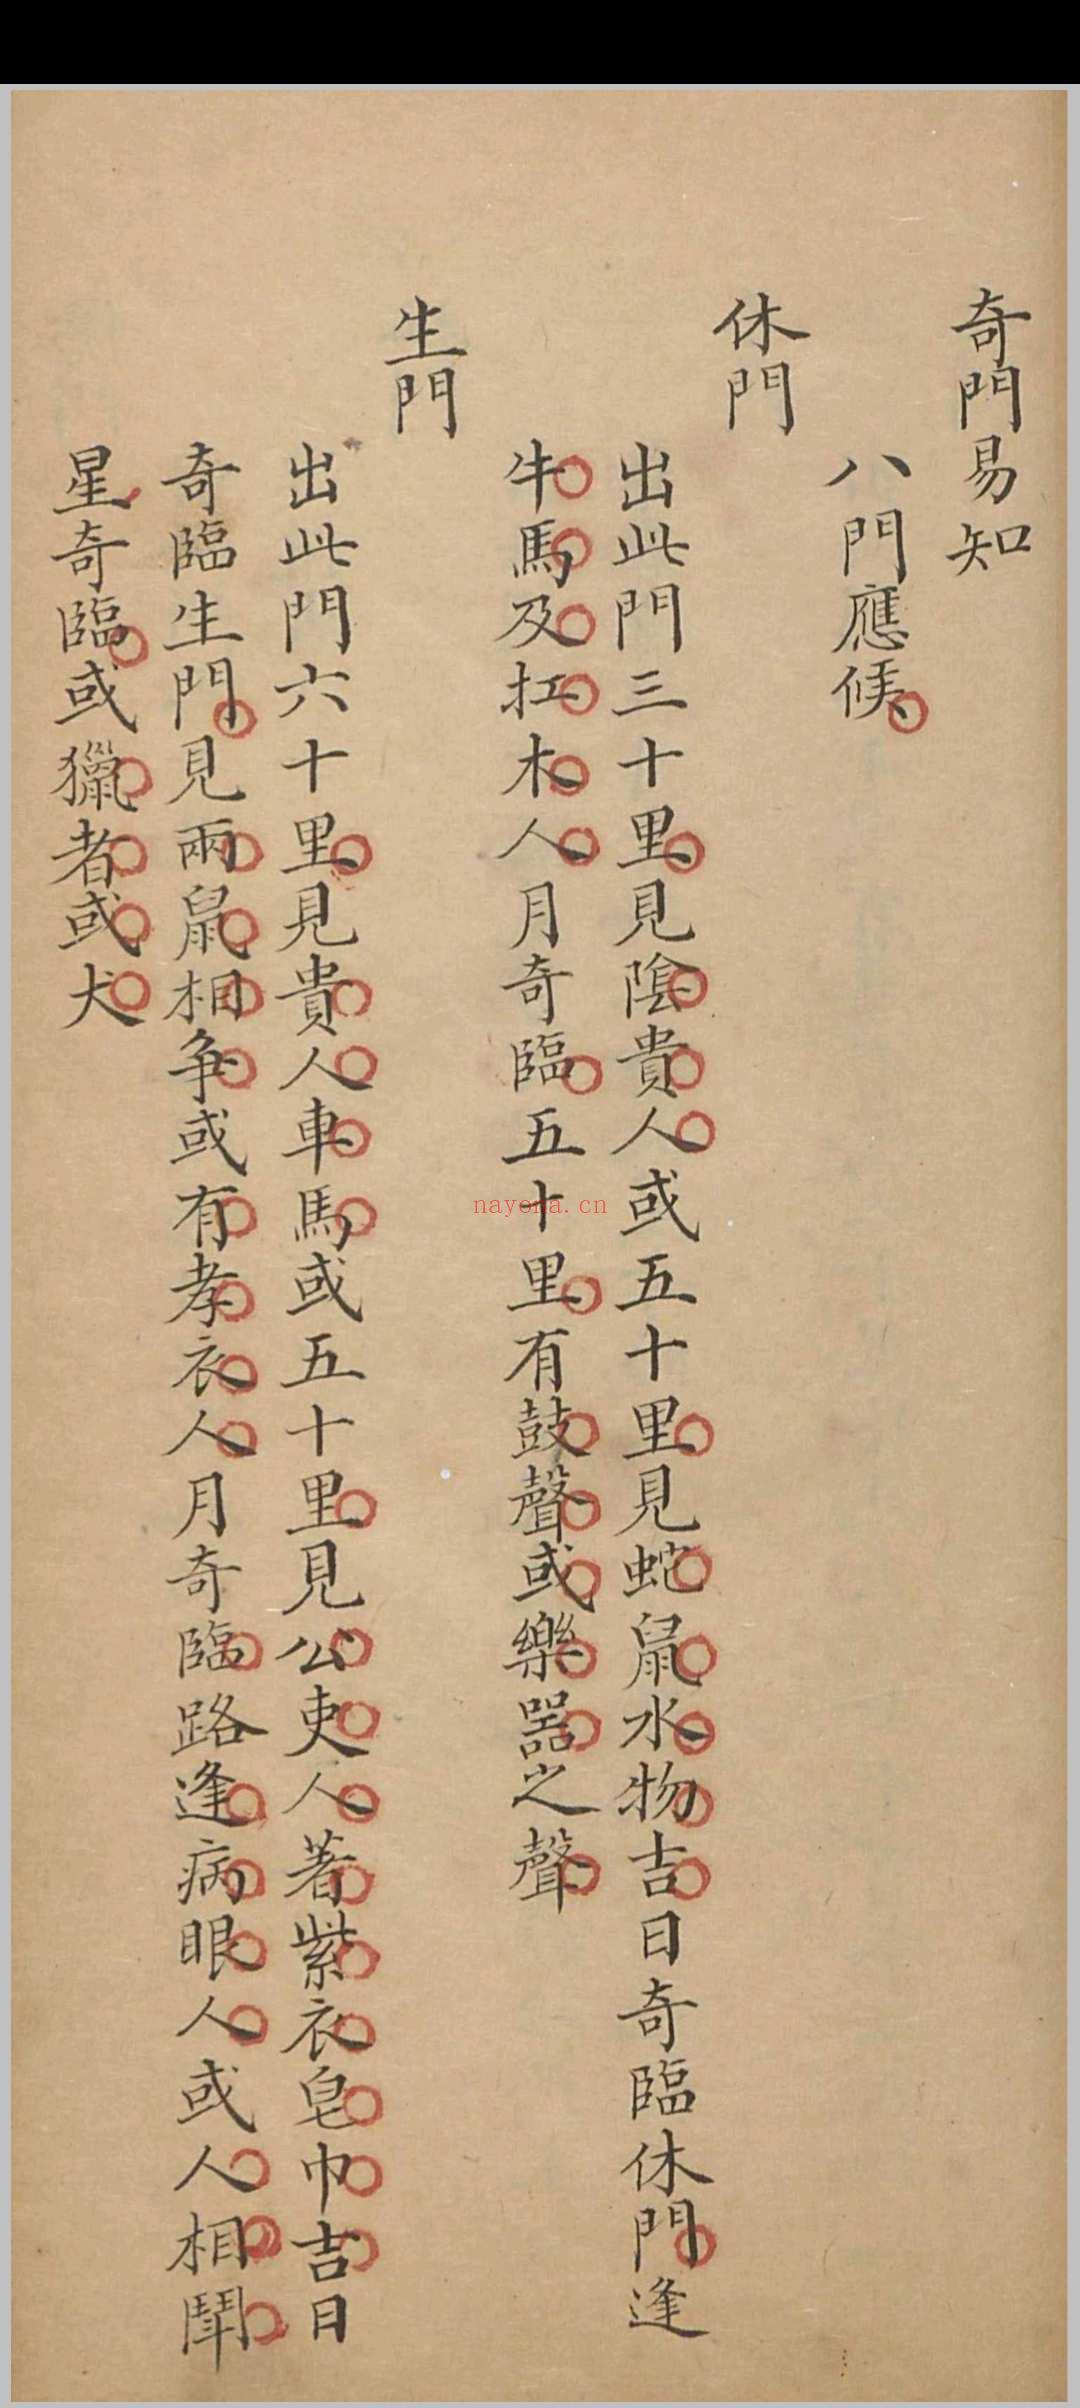 奇門易知
八門應候
休門
出此門三十里見陰貴人或五十里見蛇鼠水物吉日奇臨休門逢
牛馬及扛木人月奇臨五十里有鼓聲或樂器之聲
生門
出此門六十里見貴人車馬或五十里見公吏人著紫衣皂巾吉日
奇臨生門見兩鼠相争或有孝衣人月奇臨路逢病眼人或人相鬪
星奇臨或獵者或犬
nayona.cn